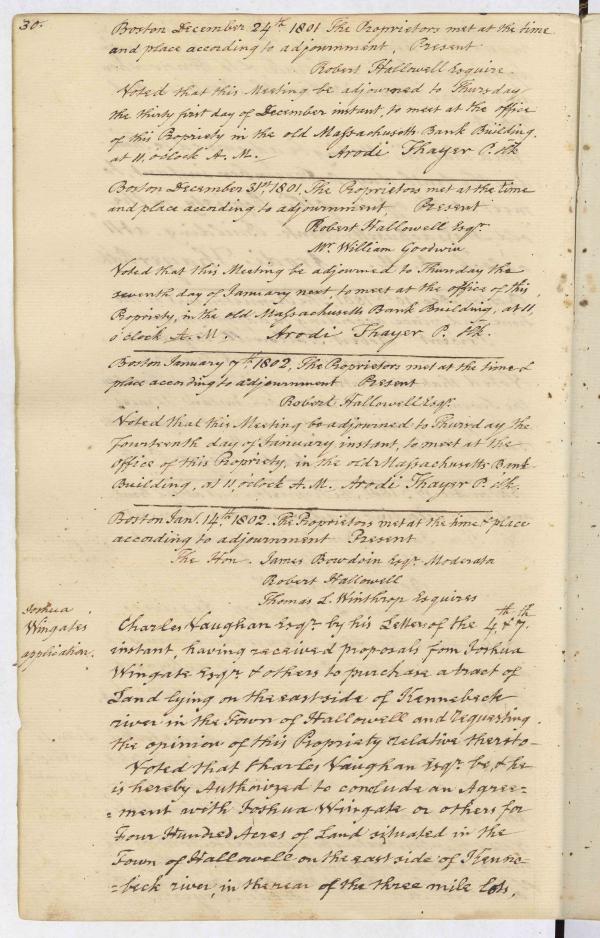 30.
Boston December 24th 1801 The Proprietors met at the time
and place according to adjournment, Present
Robert Hallowell Esquire
Voted that this Meeting be adjourned to Thursday
the thirty first day of December instant, to meet at the office
of this Propriety in the old Massachusetts Bank Building,
at 11, oClock A. M. Arodi Thayer P. Clk
Boston December 31st, 1801, The Proprietors met at the time
and place according to adjournment, Present
Robert Hallowell Esqr.
Mr. William Goodwin
Voted that this Meeting be adjourned to Thursday the
seventh day of January next, to meet at the office of this
Propriety, in the old Massachusetts Bank Building, at 11
o'clock A. M. Arodi Thayer P. Clk.
Boston January 7th 1802, The Proprietors met at the time &
place according to adjournment Present
Robert Hallowell Esqr.
Voted that this Meeting be adjourned to Thursday the
fourteenth day of January instant, to meet at the
office of this Propriety, in the old Massachusetts Bank
Building, at 11, oclock A. M. Arodi Thayer P. Clk.
Boston Jany. 14th 1802. The Proprietors met at the time & place
according to adjournment Present
The Hon James Bowdoin Esqr. Moderator
Robert Hallowell
Thomas L. Winthrop Esquires
Joshua
Wingates
application.
Charles Vaughan Esqr. by his Letter of the 4th & 7th
instant, having received proposals from Joshua
Wingate Esqr. & others to purchase a tract of
Land lying on the east side of Kennebeck
river in the Town of Hallowell and requesting
the opinion of this Propriety relative thereto
Voted that Charles Vaughan Esqr. be, & he
is hereby Authorized to conclude an Agree-
=ment with Joshua Wingate or others for
Four Hundred Acres of Land situated in the
Town of Hallowell on the east side of Kenne
=beck river, in the rear of the three mile Lots,